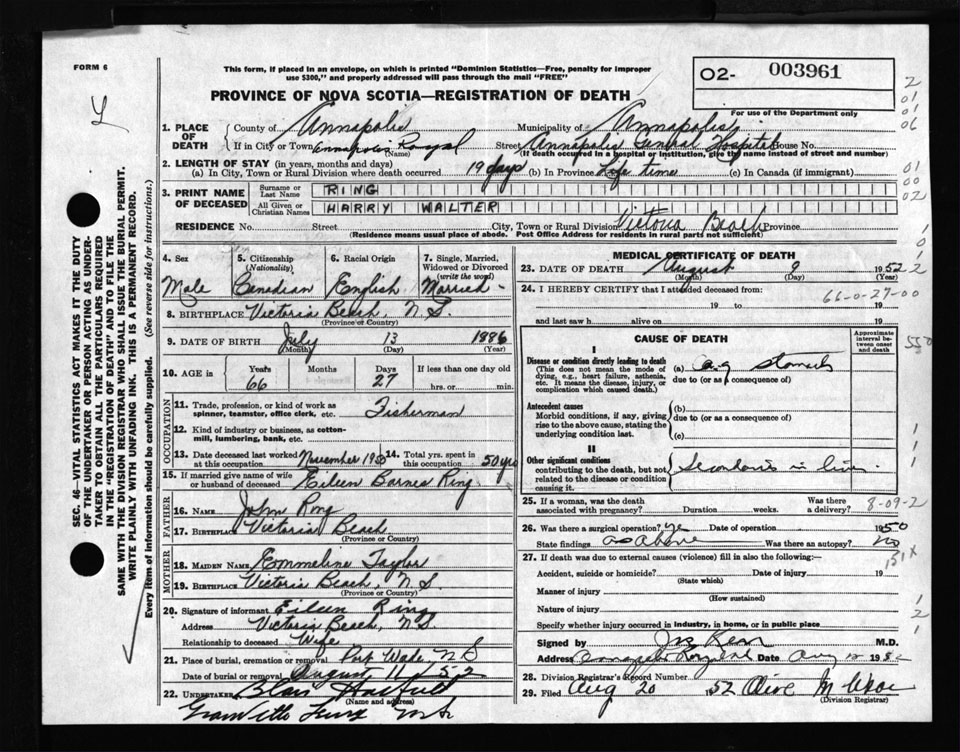 FORM 6
This form, if placed in an envelope, on which is printed "Dominion Statistics—Free, penalty for improper
use $300," and properly addressed will pass through the mail "FREE"
PROVINCE OF NOVA SCOTIA—REGISTRATION OF DEATH
02- 003961
For use of the Department only
1. PLACE OF DEATH
County of Annapolis Municipality of Annapolis
If in City or Town Annapolis Royal (Name) Street Annapolis General Hospital House No.
(If death occurred in a hospital or institution, give the name instead of street and number)
2. LENGTH OF STAY (in years, months and days)
(a) In City, Town or Rural Division where death occurred 19 days (b) In Province Life time (c) In Canada (if immigrant)
3. PRINT NAME OF DECEASED
Surname or Last Name RING
All Given or Christian Names HARRY WALTER
RESIDENCE No. Street City, Town or Rural Division Victoria Beach Province
(Residence means usual place of abode. Post Office Address for residents in rural parts not sufficient)
4. Sex Male
5. Citizenship (Nationality) Canadian
6. Racial Origin English
7. Single, Married, Widowed or Divorced (write the word) Married
8. BIRTHPLACE Victoria Beach, N.S.
(Province or Country)
9. DATE OF BIRTH July 13 1886
(Month) (Day) (Year)
10. AGE in Years 66 Months Days 27 If less than one day old
hrs. or min.
OCCUPATION
11. Trade, profession, or kind of work as
spinner, teamster, office clerk, etc. Fisherman
12. Kind of industry or business, as cotton-
mill, lumbering, bank, etc.
13. Date deceased last worked at this occupation November 19
14. Total yrs. spent in this occupation 50 yrs
15. If married give name of wife
or husband of deceased Eileen Barnes Ring
FATHER
16. Name John Ring
17. Birthplace Victoria Beach
(Province or Country)
MOTHER
18. MAIDEN NAME Emmeline Taylor
19. BIRTHPLACE Victoria Beach, N.S.
(Province or Country)
20. Signature of informant Eileen Ring
Address Victoria Beach, N.S.
Relationship to deceased Wife
21. Place of burial, cremation or removal Port Wade, N S
Date of burial or removal August 11 52
22. UNDERTAKER
(Name and address)
MEDICAL CERTIFICATE OF DEATH
23. DATE OF DEATH August 9 1952
(Month) (Day) (Year)
24. I HEREBY CERTIFY that I attended deceased from:
19 to 19
and last saw h alive on 19
66-0-27-00
CAUSE OF DEATH
Approximate interval between onset and death
I
Disease or condition directly leading to death
(This does not mean the mode of
dying, e.g., heart failure, asthenia,
etc. It means the disease, injury, or
complication which caused death.)
(a) stomach
due to (or as a consequence of)
Antecedent causes
Morbid conditions, if any, giving
rise to the above cause, stating the
underlying condition last.
(b)
due to (or as a consequence of)
(c)
II
Other significant conditions
contributing to the death, but not
related to the disease or condition
causing it.
25. If a woman, was the death
associated with pregnancy? Duration weeks. Was there a delivery?
8-09-2
26. Was there a surgical operation? yes Date of operation 1950
State findings as above Was there an autopsy? no
27. If death was due to external causes (violence) fill in also the following:—
Accident, suicide or homicide? Date of injury 19
(State which)
Manner of injury
(How sustained)
Nature of injury
Specify whether injury occurred in industry, in home, or in public place
Signed by M.D.
Address Annapolis Royal Date Aug
28. Division Registrar's Record Number
29. Filed Aug 20 1952 Olive
(Division Registrar)
SEC. 46—VITAL STATISTICS ACT MAKES IT THE DUTY
OF THE UNDERTAKER OR PERSON ACTING AS UNDER-
TAKER TO OBTAIN ALL THE PARTICULARS REQUIRED
IN THE "REGISTRATION OF DEATH" AND TO FILE THE
SAME WITH THE DIVISION REGISTRAR WHO SHALL ISSUE THE BURIAL PERMIT.
WRITE PLAINLY WITH UNFADING INK. THIS IS A PERMANENT RECORD.
Every item of information should be carefully supplied. (See reverse side for instructions.)